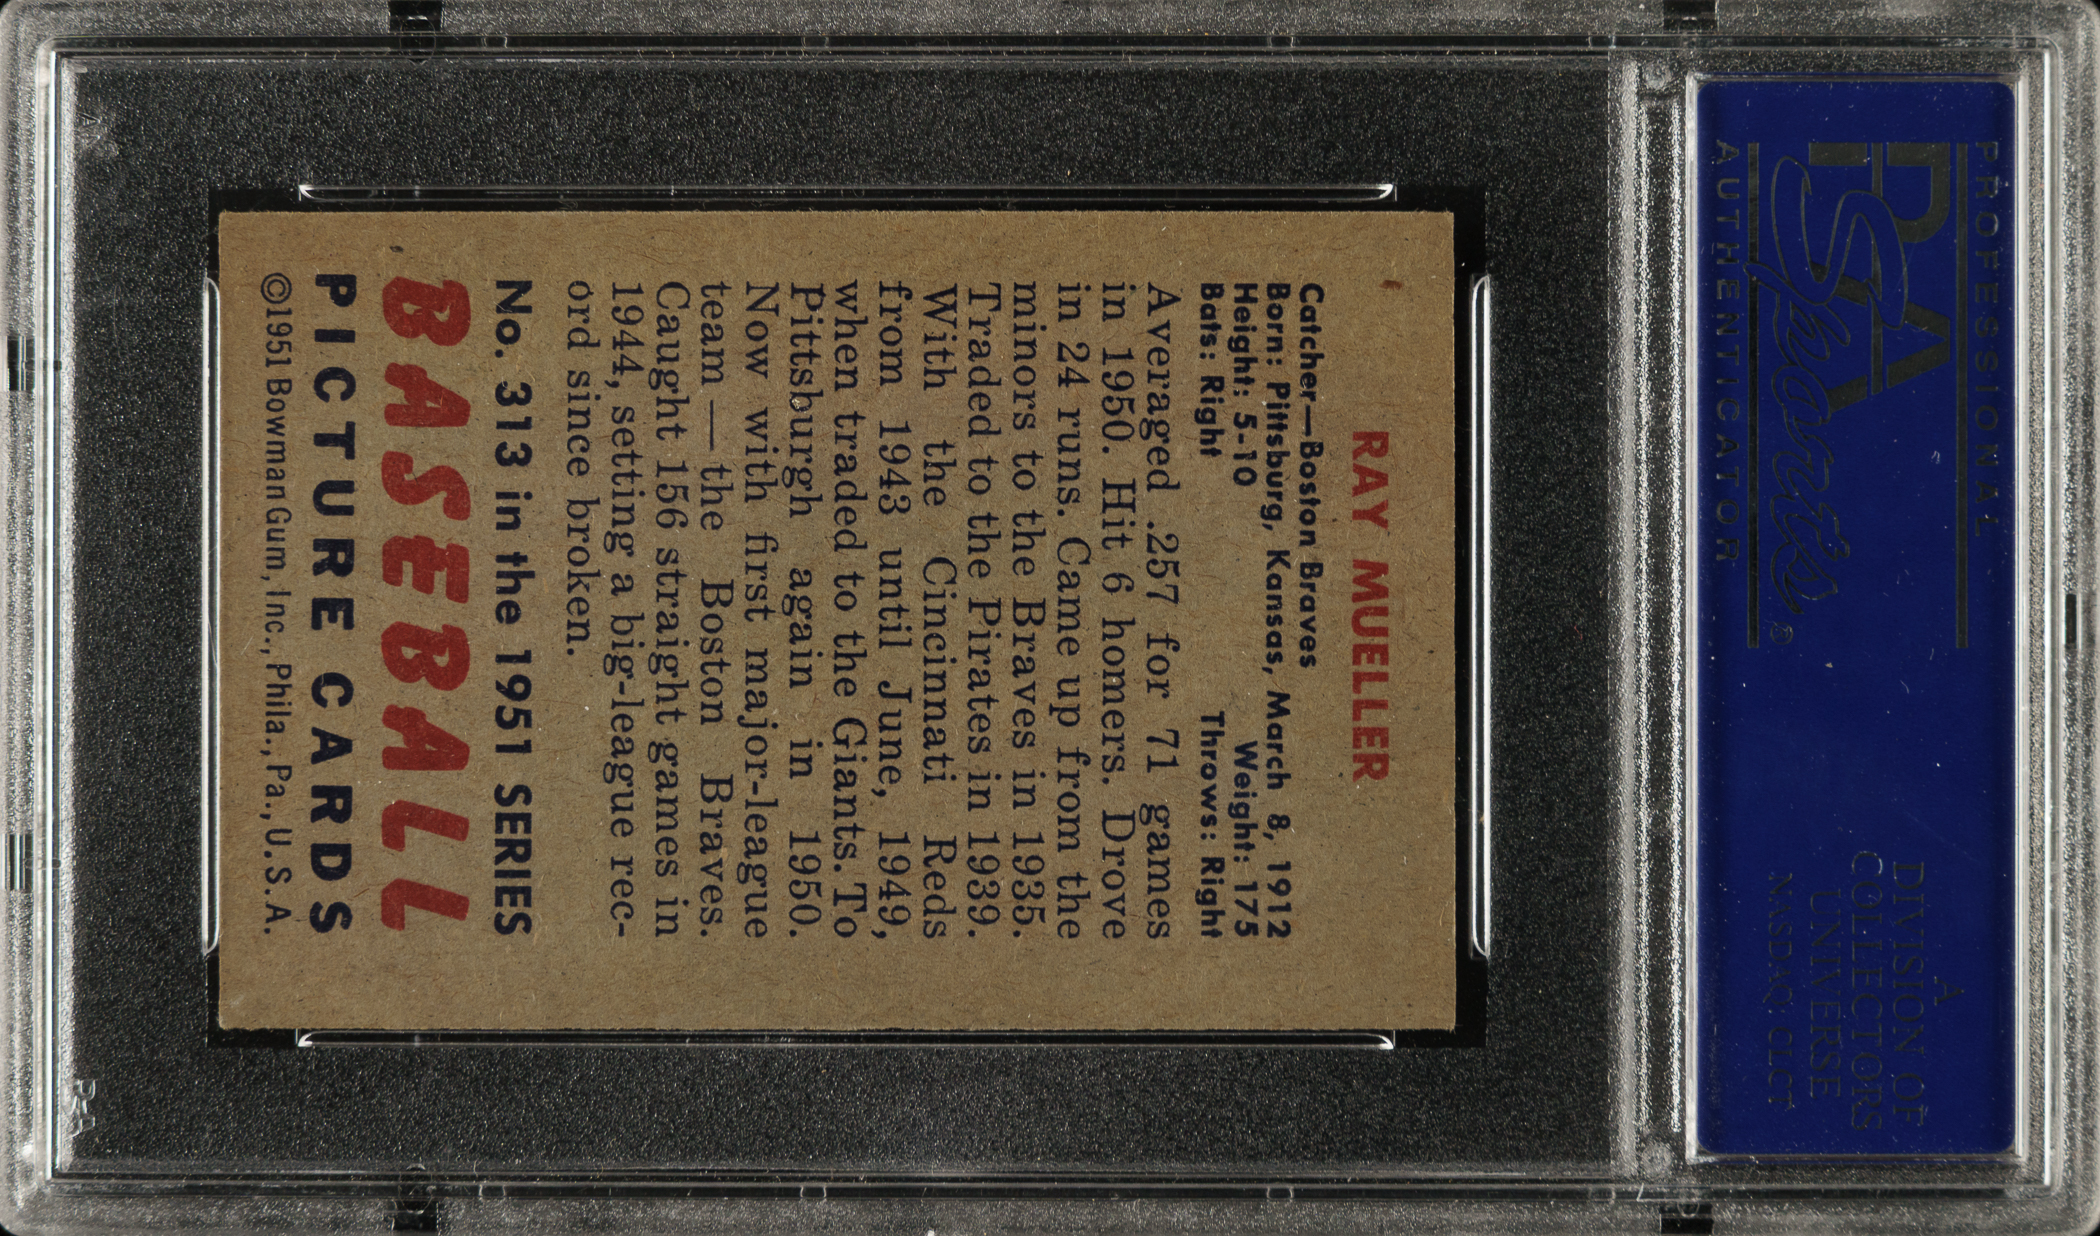 PROFESSIONAL
PSA
Sports®
AUTHENTICATOR
A
DIVISION OF
COLLECTORS
UNIVERSE
NASDAQ: CLCT
RAY MUELLER
Catcher—Boston Braves
Born: Pittsburg, Kansas, March 8, 1912
Height: 5-10 Weight: 175
Bats: Right Throws: Right
Averaged .257 for 71 games
in 1950. Hit 6 homers. Drove
in 24 runs. Came up from the
minors to the Braves in 1935.
Traded to the Pirates in 1939.
With the Cincinnati Reds
from 1943 until June, 1949,
when traded to the Giants. To
Pittsburgh again in 1950.
Now with first major-league
team — the Boston Braves.
Caught 156 straight games in
1944, setting a big-league rec-
ord since broken.
No. 313 in the 1951 SERIES
BASEBALL
PICTURE CARDS
©1951 Bowman Gum, Inc., Phila., Pa., U.S.A.
PSA